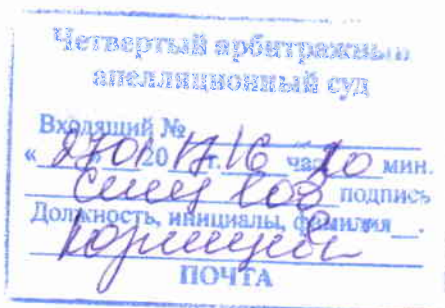 Четвертый арбитражный
апелляционный суд
Входящий №
« 27 » 01 20 17 г. 16 час 20 мин.
подпись
Должность, инициалы, фамилия
ПОЧТА